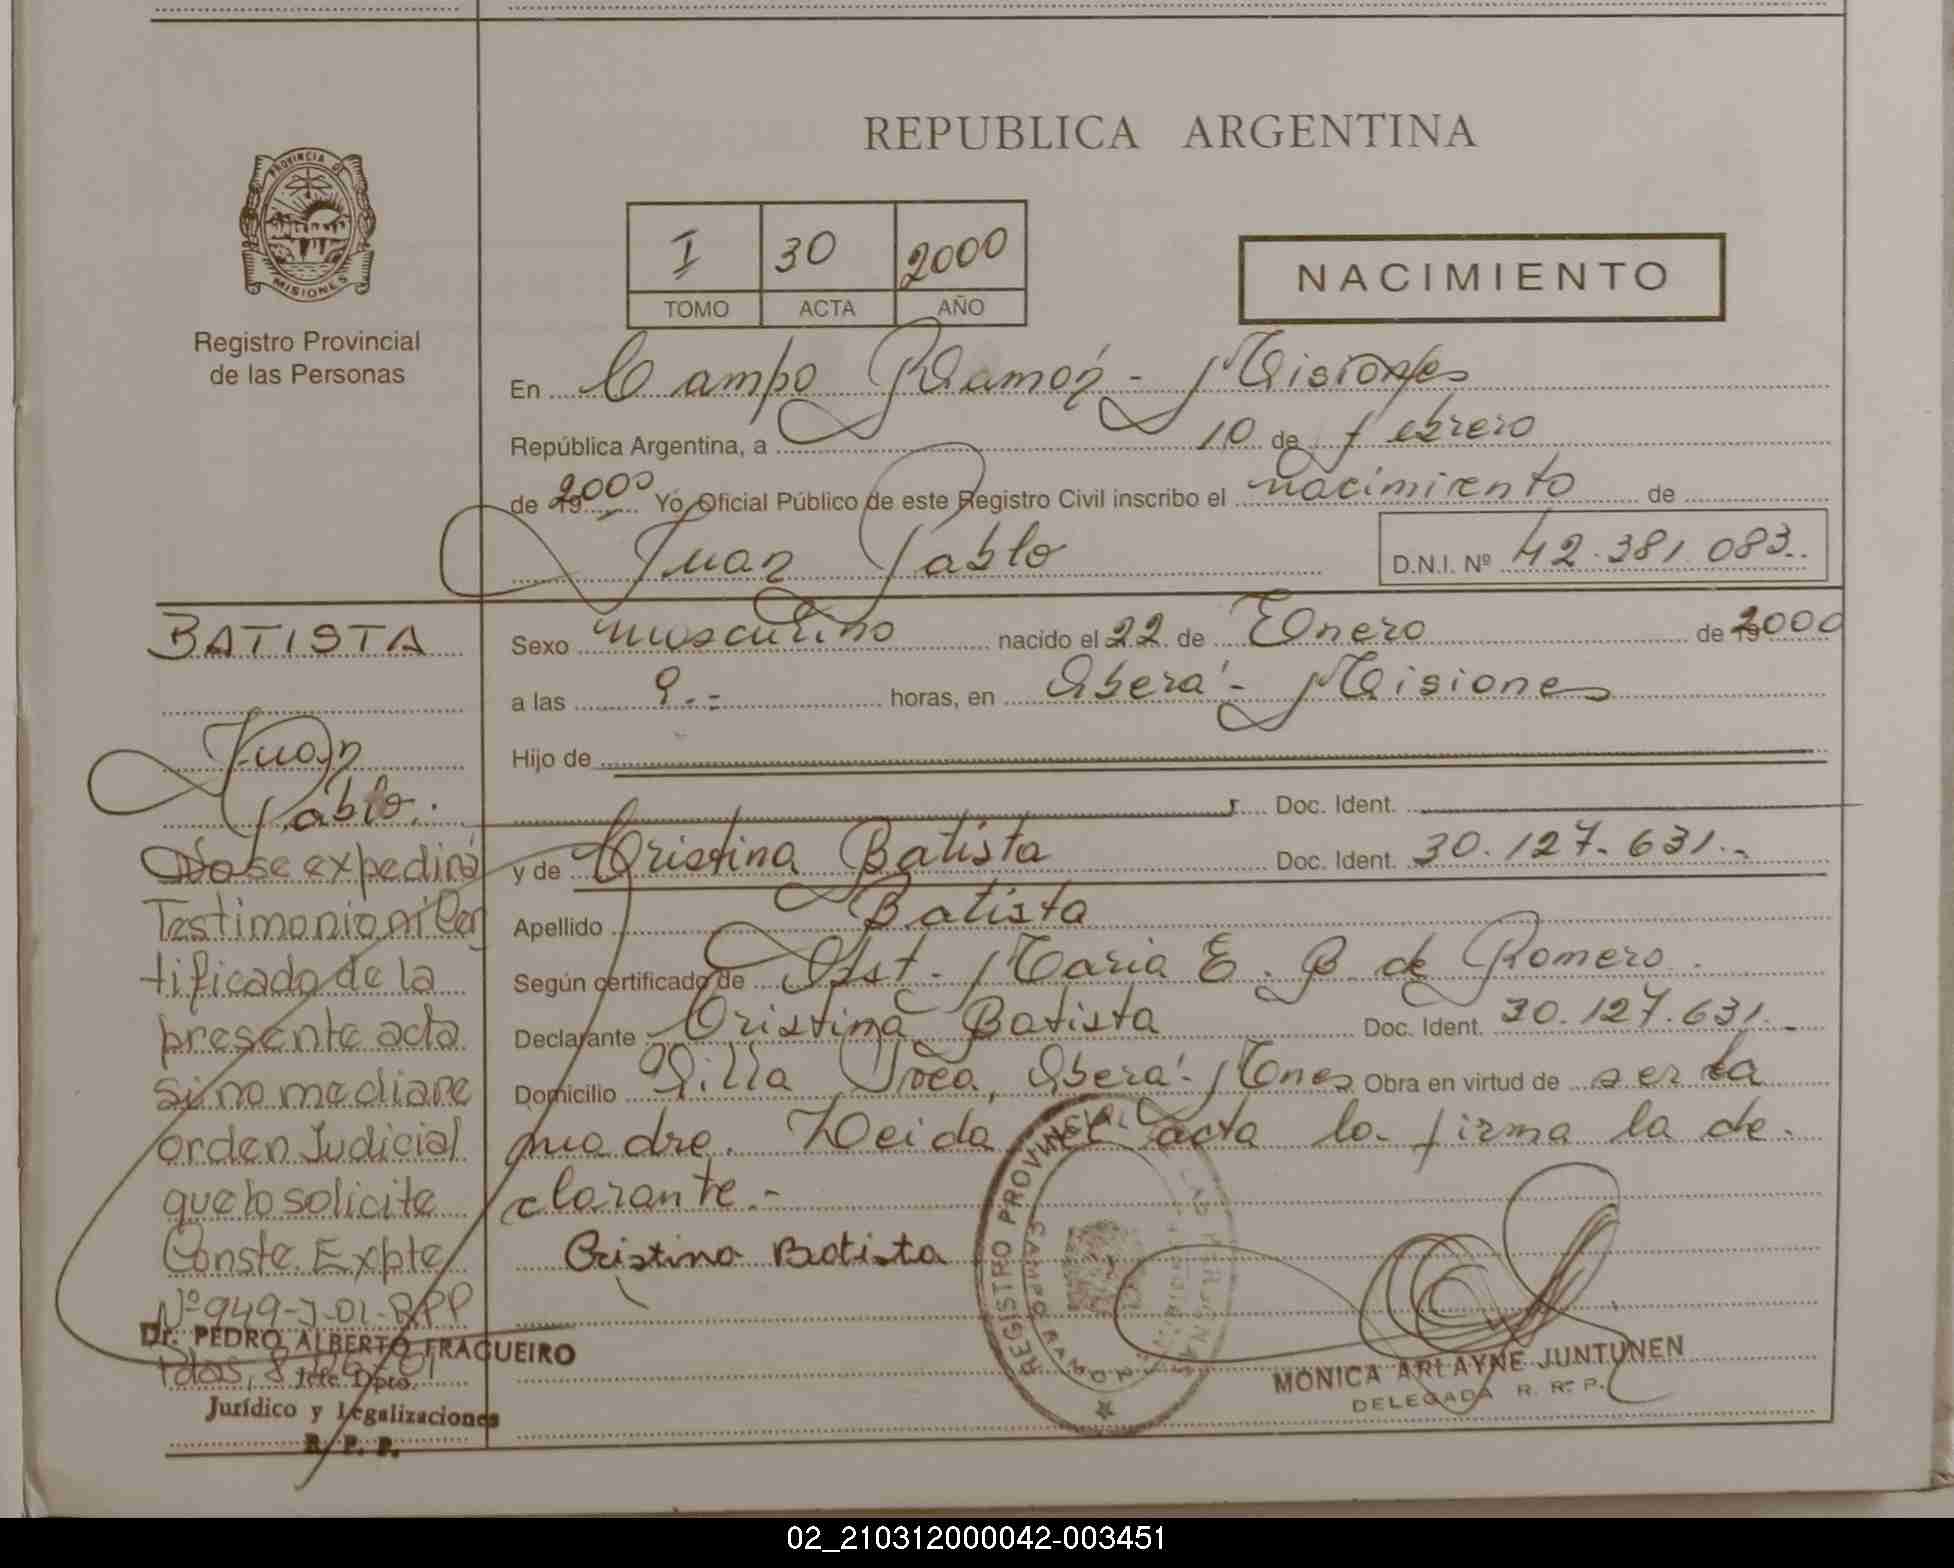 REPUBLICA ARGENTINA
PROVINCIA DE
MISIONES
Registro Provincial
de las Personas
I 30 2000
TOMO ACTA AÑO
NACIMIENTO
En Campo Ramón - Misiones
República Argentina, a 10 de febrero
de 2000 Yo Oficial Público de este Registro Civil inscribo el nacimiento de
Juan Pablo D.N.I. Nº 42.381.083..
BATISTA
Juan
Pablo.
No se expedirá
Testimonio ni Cer
tificado de la
presente acta
si no mediare
orden Judicial
que lo solicite
Conste. Expte
Nº 949-J-01-RPP
Pdas, 8
Dr. PEDRO ALBERTO FRAGUEIRO
Jefe Dpto.
Jurídico y Legalizaciones
R. P. P.
Sexo masculino nacido el 22 de Enero de 2000
a las 9.- horas, en Oberá - Misiones
Hijo de
Doc. Ident.
y de Cristina Batista Doc. Ident. 30.127.631.-
Apellido Batista
Según certificado de Obst. Maria E. B de Romero.
Declarante Cristina Batista Doc. Ident. 30.127.631.-
Domicilio Villa Oberá - Mnes Obra en virtud de ser la
madre. Leida el acta la firma la de-
clarante.-
Cristina Batista
REGISTRO PROVINCIAL DE LAS PERSONAS
CAMPO RAMON
MONICA ARLAYNE JUNTUNEN
DELEGADA R. R. P.
02_210312000042-003451